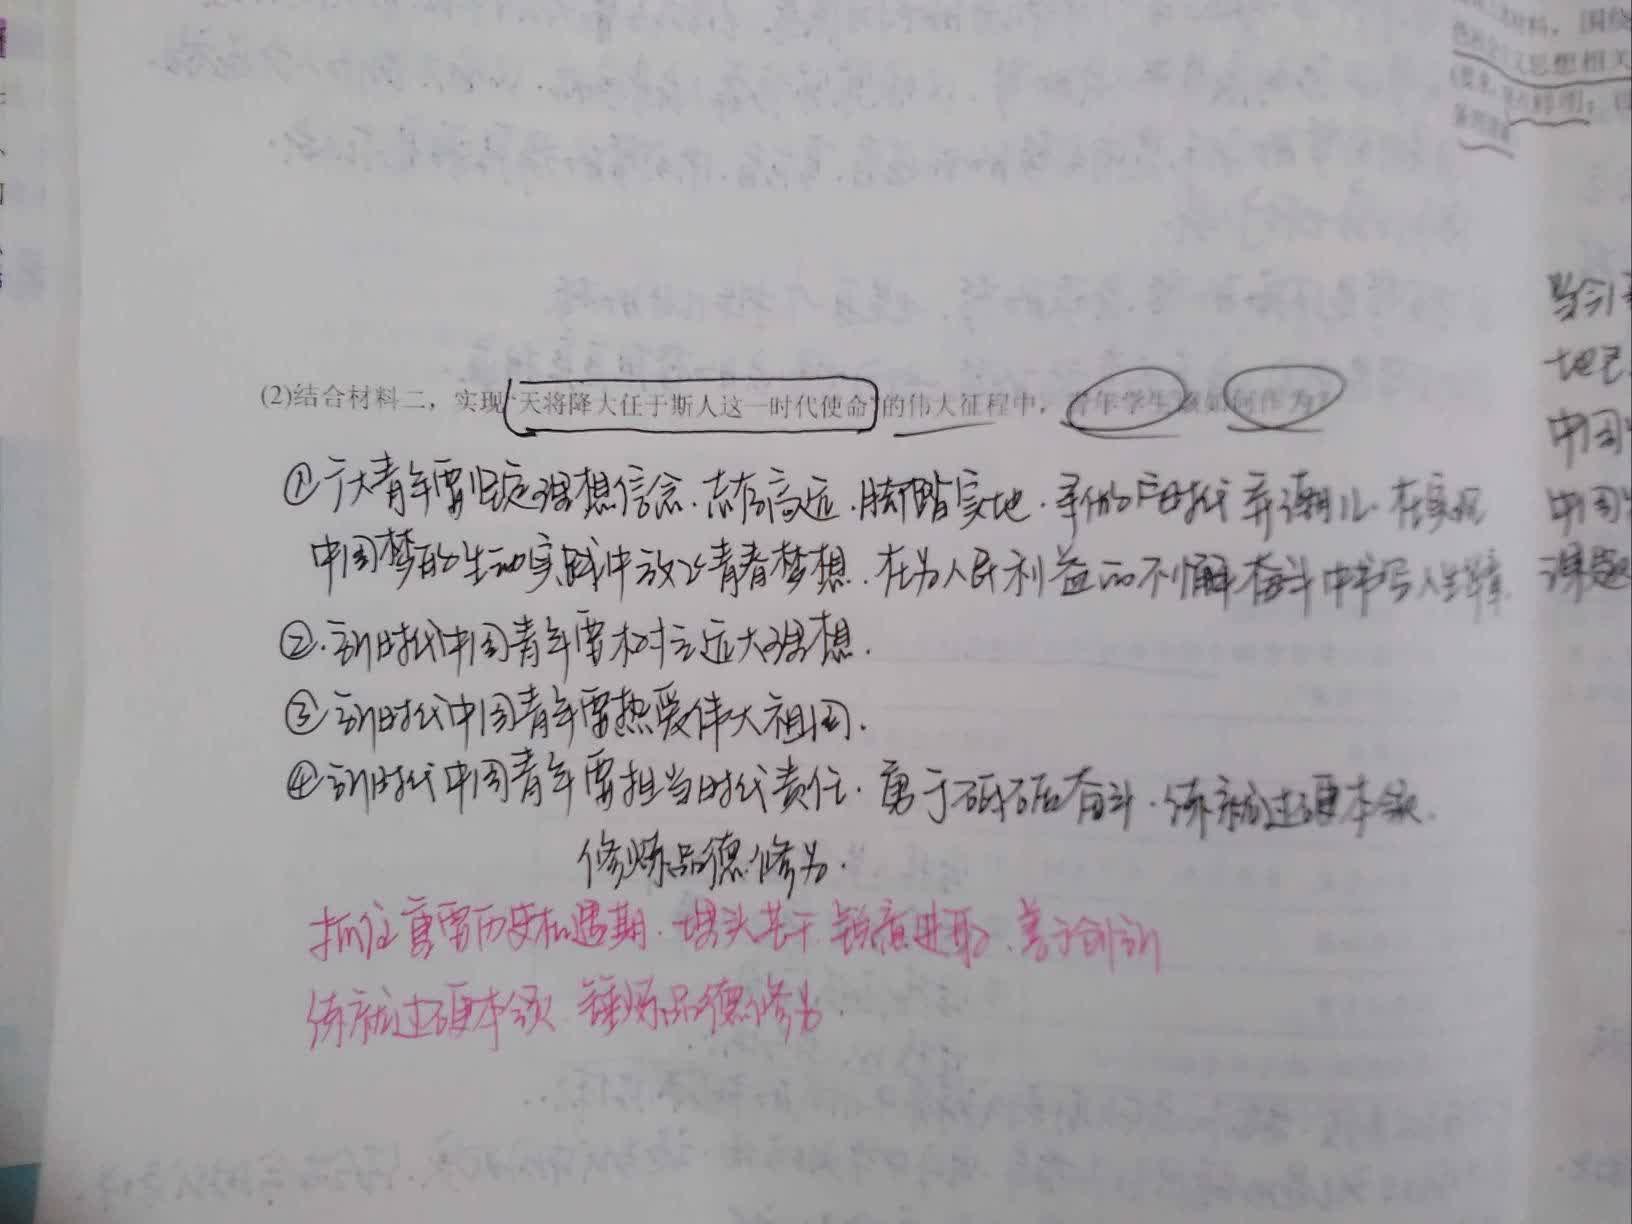 材料，围绕
思想相关
(2)结合材料二，实现“天将降大任于斯人这一时代使命”的伟大征程中，青年学生该如何作为？
①广大青年要坚定理想信念、志存高远、脚踏实地，争做时代弄潮儿，在实现
中国梦的生动实践中放飞青春梦想，在为人民利益的不懈奋斗中书写人生华章
②.新时代中国青年要树立远大理想.
③新时代中国青年要热爱伟大祖国.
④新时代中国青年要担当时代责任.勇于砥砺奋斗.练就过硬本领.
修炼品德修为.
抓住宝贵历史机遇期.埋头苦干 锐意进取、善于创新
练就过硬本领 锤炼品德修为.
当今
中国
中国
课题